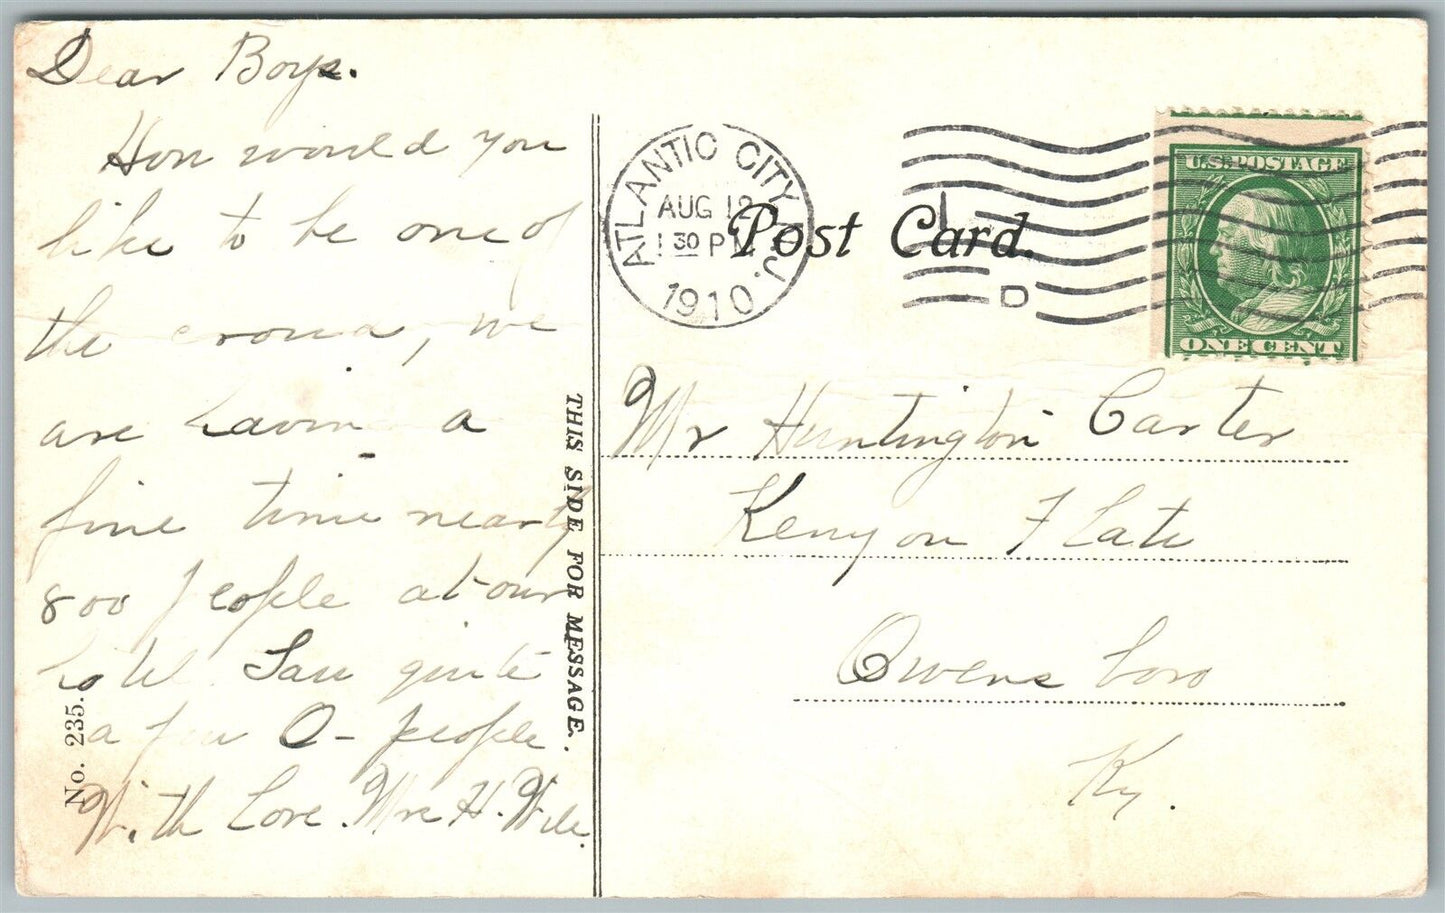 Dear Boys.
How would you
like to be one of
the crowd, we
are having a
fine time nearly
800 people at our
hotel Saw quite
a few O- people.
With Love. Mrs H.
No. 235.
THIS SIDE FOR MESSAGE.
ATLANTIC CITY, N.J.
AUG 12
1 30 PM
1910
D
Post Card.
U.S. POSTAGE
ONE CENT
Mr Huntington Carter
Kenyon Flats
Owensboro
Ky.